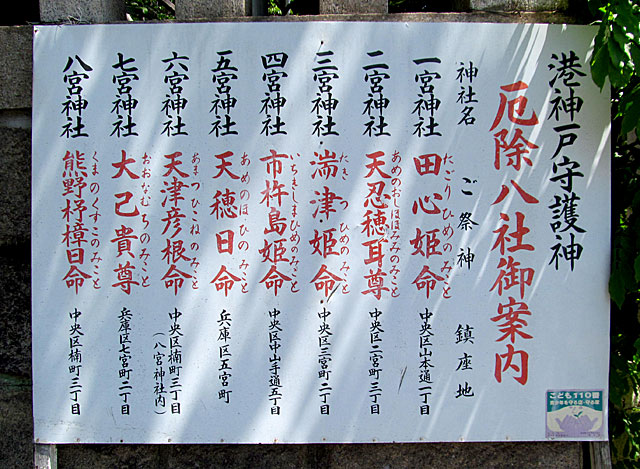 港神戸守護神
厄除八社御案内
神社名 ご祭神 鎮座地
一宮神社 田心姫命 たごりひめのみこと 中央区山本通一丁目
二宮神社 天忍穂耳尊 あめのおしほほみみのみこと 中央区二宮町三丁目
三宮神社 湍津姫命 たきつひめのみこと 中央区三宮町二丁目
四宮神社 市杵島姫命 いちきしまひめのみこと 中央区中山手通五丁目
五宮神社 天穂日命 あめのほひのみこと 兵庫区五宮町
六宮神社 天津彦根命 あまつひこねのみこと 中央区楠町三丁目
(八宮神社内)
七宮神社 大己貴尊 おおなむちのみこと 兵庫区七宮町二丁目
八宮神社 熊野杼樟日命 くまのくすこのみこと 中央区楠町三丁目
こども110番